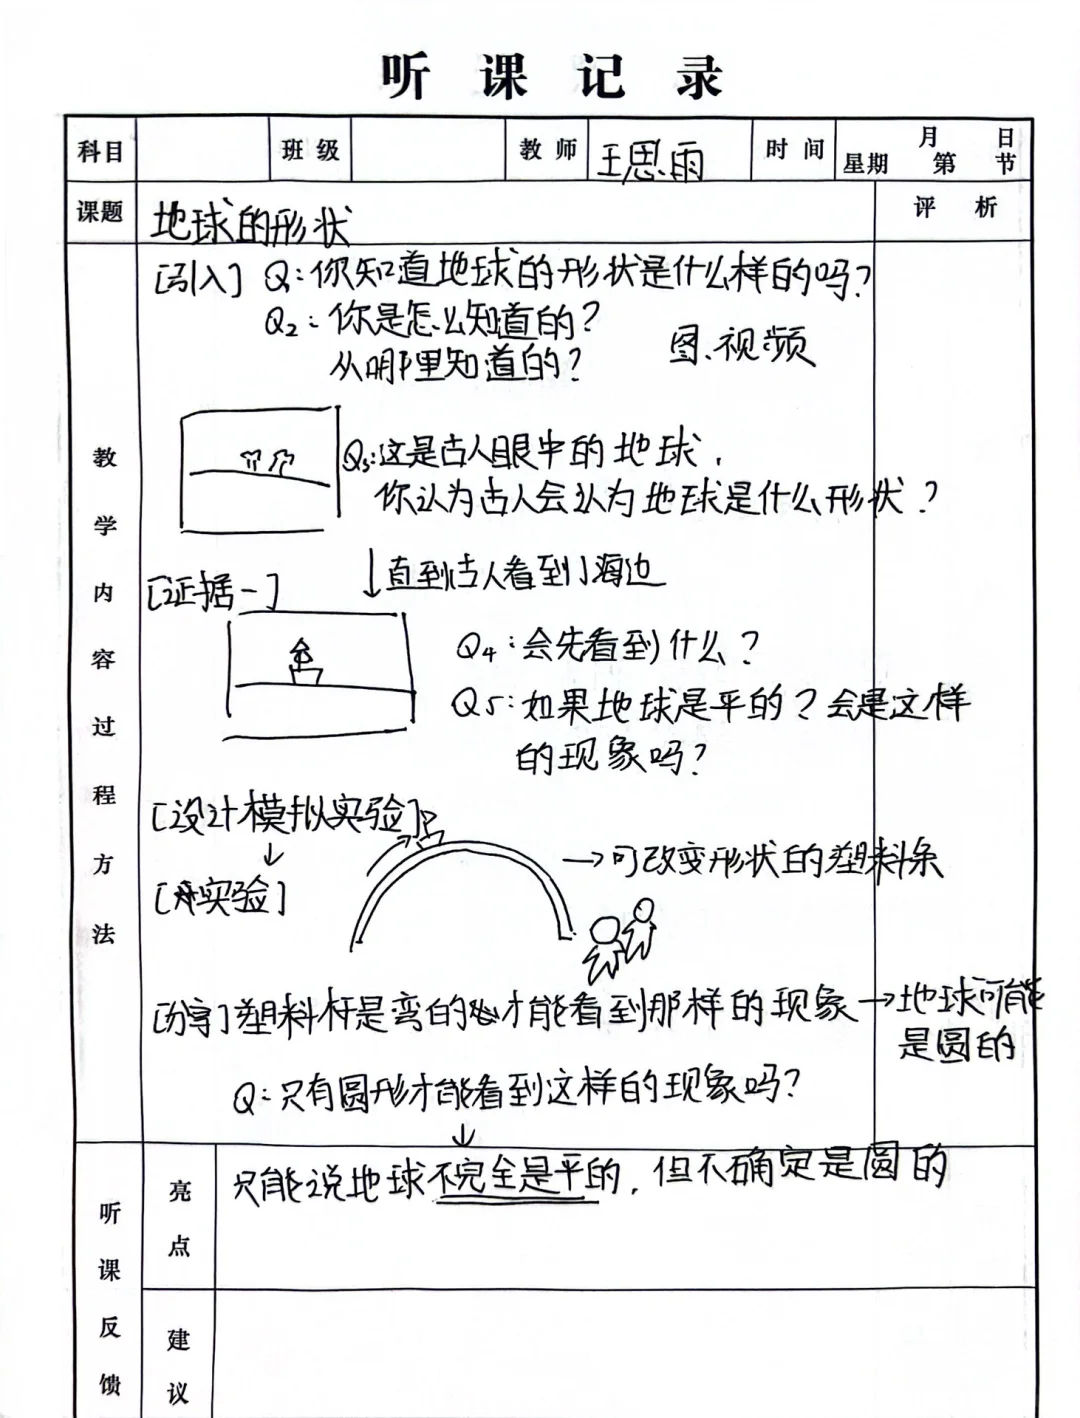 听课记录
科目 班级 教师 王思雨 时间 月 日 星期 第 节
课题 地球的形状 评析
教学内容过程方法
[引入] Q1:你知道地球的形状是什么样的吗?
Q2:你是怎么知道的?
从哪里知道的?
图、视频
Q3:这是古人眼中的地球,
你认为古人会认为地球是什么形状?
↓直到古人看到海边
[证据一]
Q4:会先看到什么?
Q5:如果地球是平的?会是这样
的现象吗?
[设计模拟实验]
↓
→可改变形状的塑料条
[实验]
[分享]塑料杆是弯的才能看到那样的现象→地球可能
是圆的
Q:只有圆形才能看到这样的现象吗?
↓
听课反馈
亮点
只能说地球不完全是平的,但不确定是圆的
建议